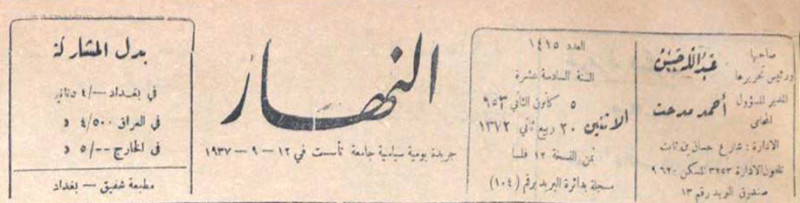 صاحبها
ورئيس تحريرها
عبدالله حسن
المدير المسؤول
المحامي
أحمد مدحت
الادارة : شارع حسان بن ثابت
تلفون الادارة ٣٢٥٣ المسكن ٩٦٢٠
صندوق البريد رقم ١٣
العدد ١٤١٥
السنة السادسة عشرة
الاثنين
٥ كانون الثاني ٩٥٣
٢٠ ربيع ثاني ١٣٧٢
ثمن النسخة ١٢ فلسا
مسجلة بدائرة البريد برقم (١٠٤)
النهار
جريدة يومية سياسية جامعة تأسست في ١٢ – ٩ – ١٩٣٧
بدل المشاركة
في بغداد ٤/٠٠ دنانير
في العراق ٤/٥٠٠ د
في الخارج ٥/٠٠ د
مطبعة شفيق – بغداد